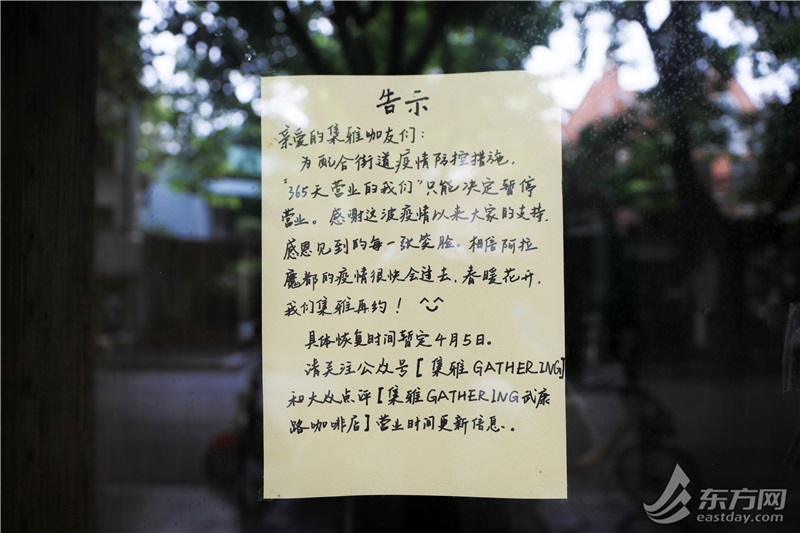 告示
亲爱的集雅咖友们：
为配合街道疫情防控措施，
“365天营业的我们”只能决定暂停
营业。感谢这波疫情以来大家的支持，
感恩见到的每一张笑脸。相信阿拉
魔都的疫情很快会过去，春暖花开，
我们集雅再约！^_^
具体恢复时间暂定4月5日。
请关注公众号[集雅GATHERING]
和大众点评[集雅GATHERING武康
路咖啡店]营业时间更新信息。
东方网
eastday.com